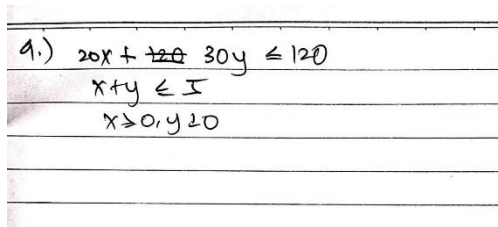 9.) 20x + 30y ≤ 120
x+y ≤ 5
x≥0, y≥0